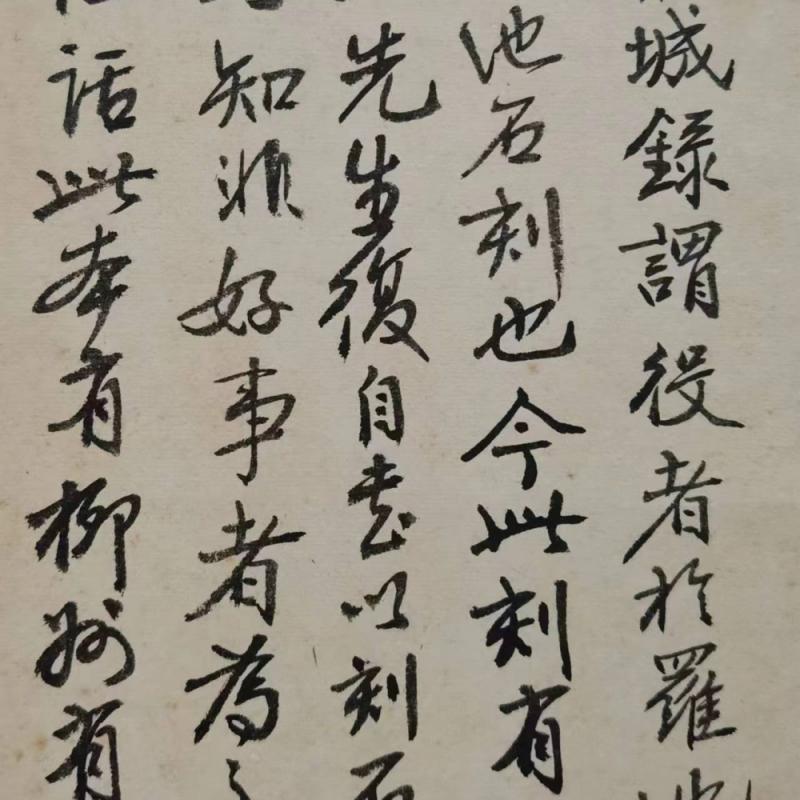 城錄謂役者於羅池
池石刻也今此刻有
先生復自書以刻石
知非好事者為之
話此本有柳州有